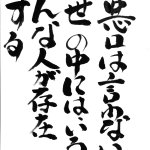 悪口は言わない
世の中にはいろ
んな人が存在
する